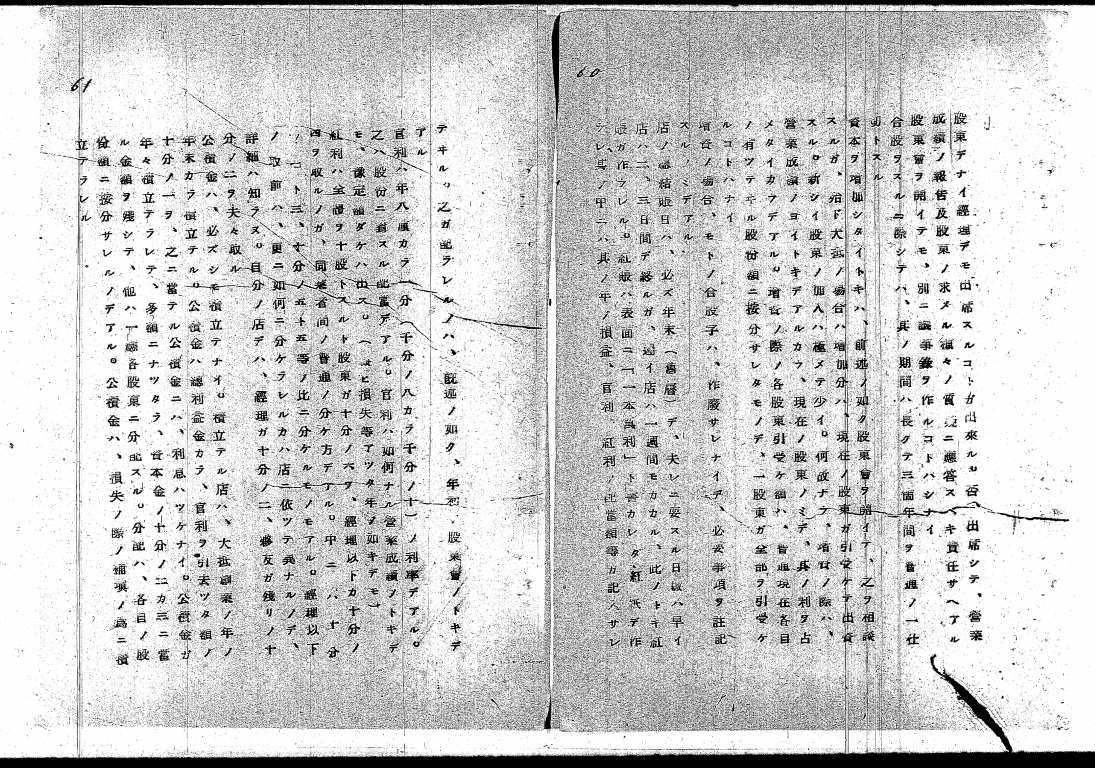 60
股東デナイ經理デモ出席スルコトガ出來ル。否、出席シテ、營業
成績ノ報告及股東ノ求メル種々ノ質 ニ應答スベキ責任サヘアル
股東會ヲ開イテモ、別ニ議事錄ヲ作ルコトハシナイ
合股ヲスルニ際シテハ、其ノ期間ハ長クテ三箇年間ヲ普通ノ一仕
切トスル
資本ヲ增加シタイトキハ、前述ノ如ク股東會ヲ開イテ、之ヲ相談
スルガ、殆ド大抵ノ場合ハ增加分ハ、現在ノ股東ガ引受ケテ出資
スル。新シイ股東ノ加入ハ極メテ少イ。何故ナラ、增資ノ際ハ、
營業成績ノヨイトキデアルカラ、現在ノ股東ノミデ、其ノ利ヲ占
メタイカラデアル。增資ノ際ノ各股東引受ケ額ハ、普通現在各自
ノ有ツテヰル股份額ニ按分サレタモノデ、一股東ガ全部ヲ引受ケ
ルコトハナイ
增資ノ場合、モトノ合股子ハ、作廢サレナイデ、必要事項ヲ註記
スルノミデアル
店ノ總結賬日ハ、必ズ年末（舊曆）デ、夫レニ要スル日數ハ早イ
店ハ二、三日間デ終ルガ、遲イ店ハ一週間モカカル、此ノトキ紅
賬ガ作ラレル。紅賬ハ表面ニ「一本萬利」ト書カレタ、紅 デ作
ラレ其ノ中ニハ其ノ年ノ損益、官利、紅利ノ配當額等ガ記入サレ
61
テヰル。之ガ配ラレルノハ、既述ノ如ク、年 股東會ノトキデ
アル
官利ハ年八厘カラ一分（千分ノ八カラ千分ノ十）ノ利率デアル。
之ハ股份ニ對スル配當デアル。官利ハ如何ナル營業成績ノトキデ
モ、豫定額ダケハ出ス。（ 損失等アツタ年ノ如キデモ）
紅利ハ全體ヲ十股トスルト股東ガ十分ノ六ヲ、經理以下ガ十分ノ
四ヲ取ルノガ、同業者間ノ普通ノ分ケ方デアル。中ニハ、十分
ノ ト三、十分ノ五ト五等ノ比ニ分ケルモノモアル。經理以下
ノ取前ハ、更ニ如何ニ分ケラレルカハ店ニ依ツテ異ナルノデ、
詳細ハ知ラヌ。自分ノ店デハ、經理ガ十分ノ二、夥友ガ殘リノ十
分ノ二ヲ夫々取ル
公積金ハ、必ズシモ積立テナイ。積立テル店ハ、大抵創業ノ年ノ
年末カラ積立テル。公積金ハ總利益金カラ、官利ヲ引去ツタ額ノ
十分ノ一ヲ、之ニ當テル公積金ニハ、利息ハツケナイ。公積金ガ
年々積立テラレテ、多額ニナツタラ、資本金ノ十分ノ二カ三ニ當
ル金額ヲ殘シテ、他ハ一應各股東ニ分配スル。分配ハ、各自ノ股
份額ニ按分サレルノデアル。公積金ハ、損失ノ際ノ補塡ノ爲ニ積
立テラレル